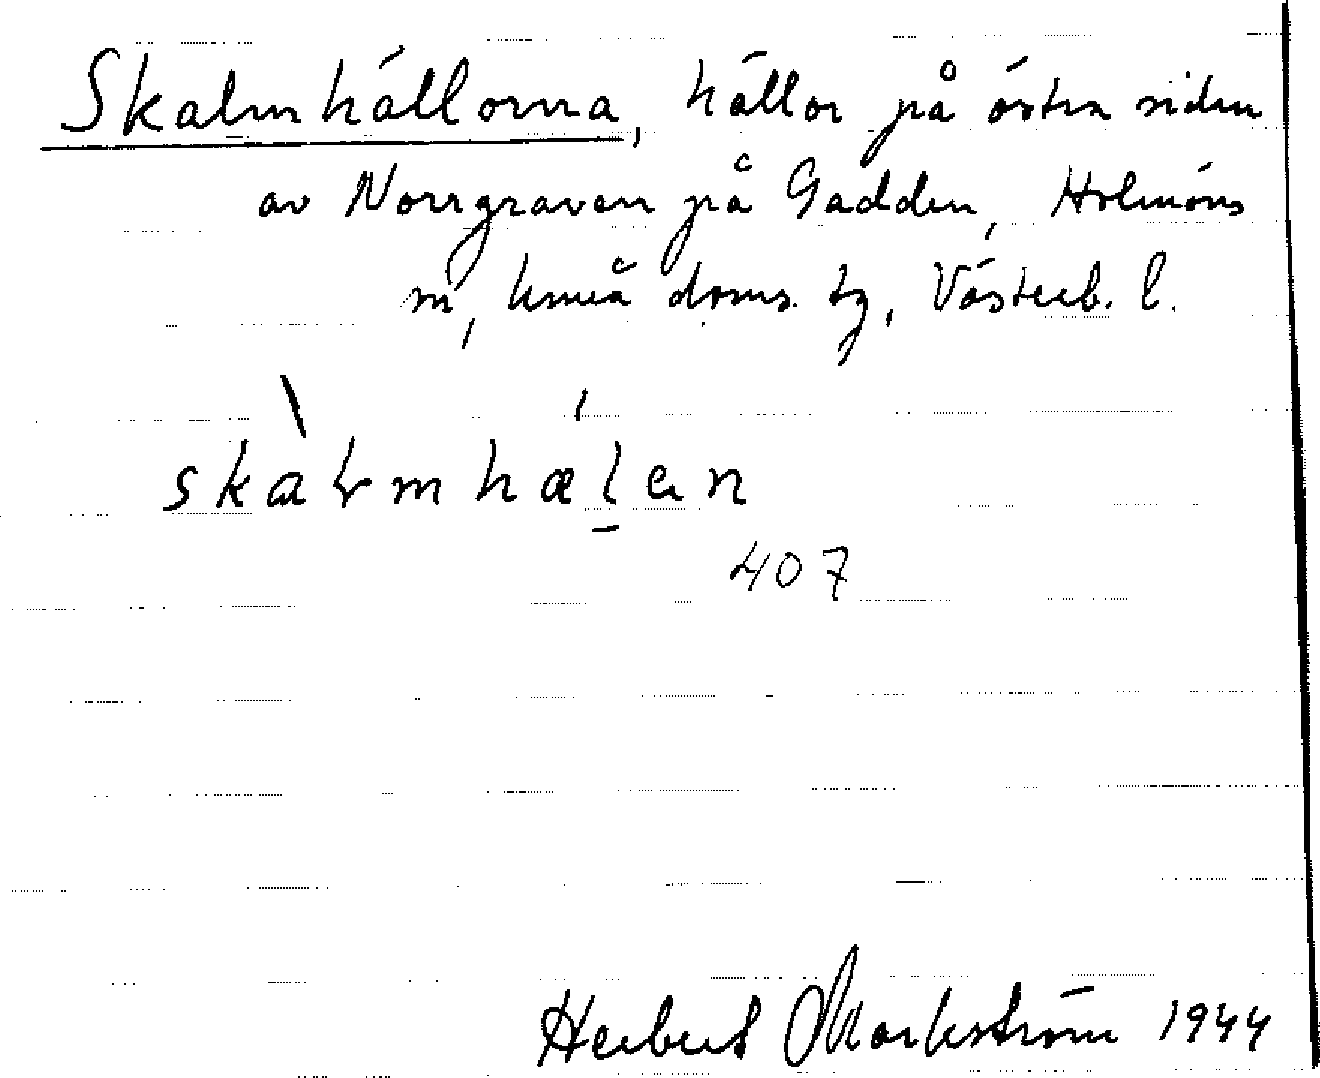 Skalmhällorna, hällor på östra sidan
av Norrgraven på Gadden, Holmöns
sn, Umeå doms. tg, Västerb. l.
skàɽmhæl̲an
407
Herbert Markström 1944